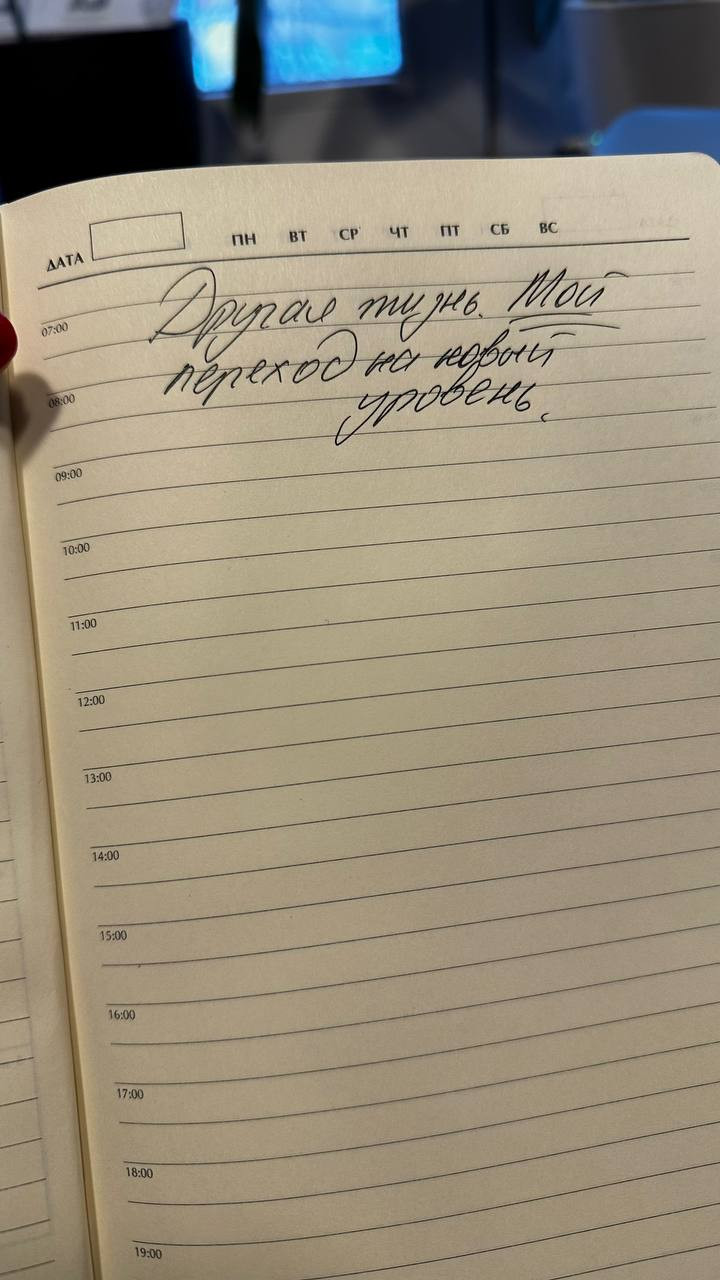 ДАТА ПН ВТ СР ЧТ ПТ СБ ВС
Другая жизнь. Мой
07:00
переход на новый
08:00
уровень.
09:00
10:00
11:00
12:00
13:00
14:00
15:00
16:00
17:00
18:00
19:00